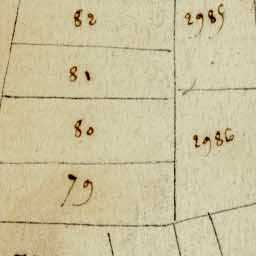 82 2985
81
80 2986
79